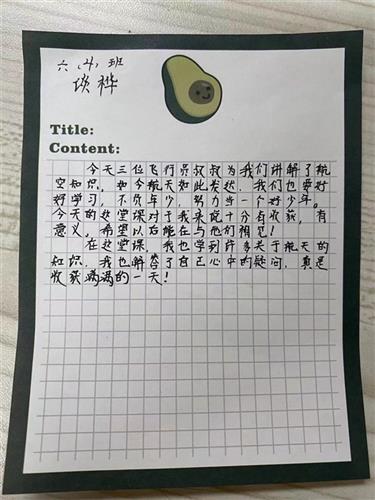 六（4）班
谈桦
Title:
Content:
今天三位飞行员叔叔为我们讲解了航
空知识，如今航天如此发达，我们也要好
好学习，不负年少，努力当一个好少年。
今天的这堂课对于我来说十分有收获，有
意义，希望以后能在与他们相见！
在这堂课，我也学到许多关于航天的
知识，我也解答了自己心中的疑问，真是
收获满满的一天！